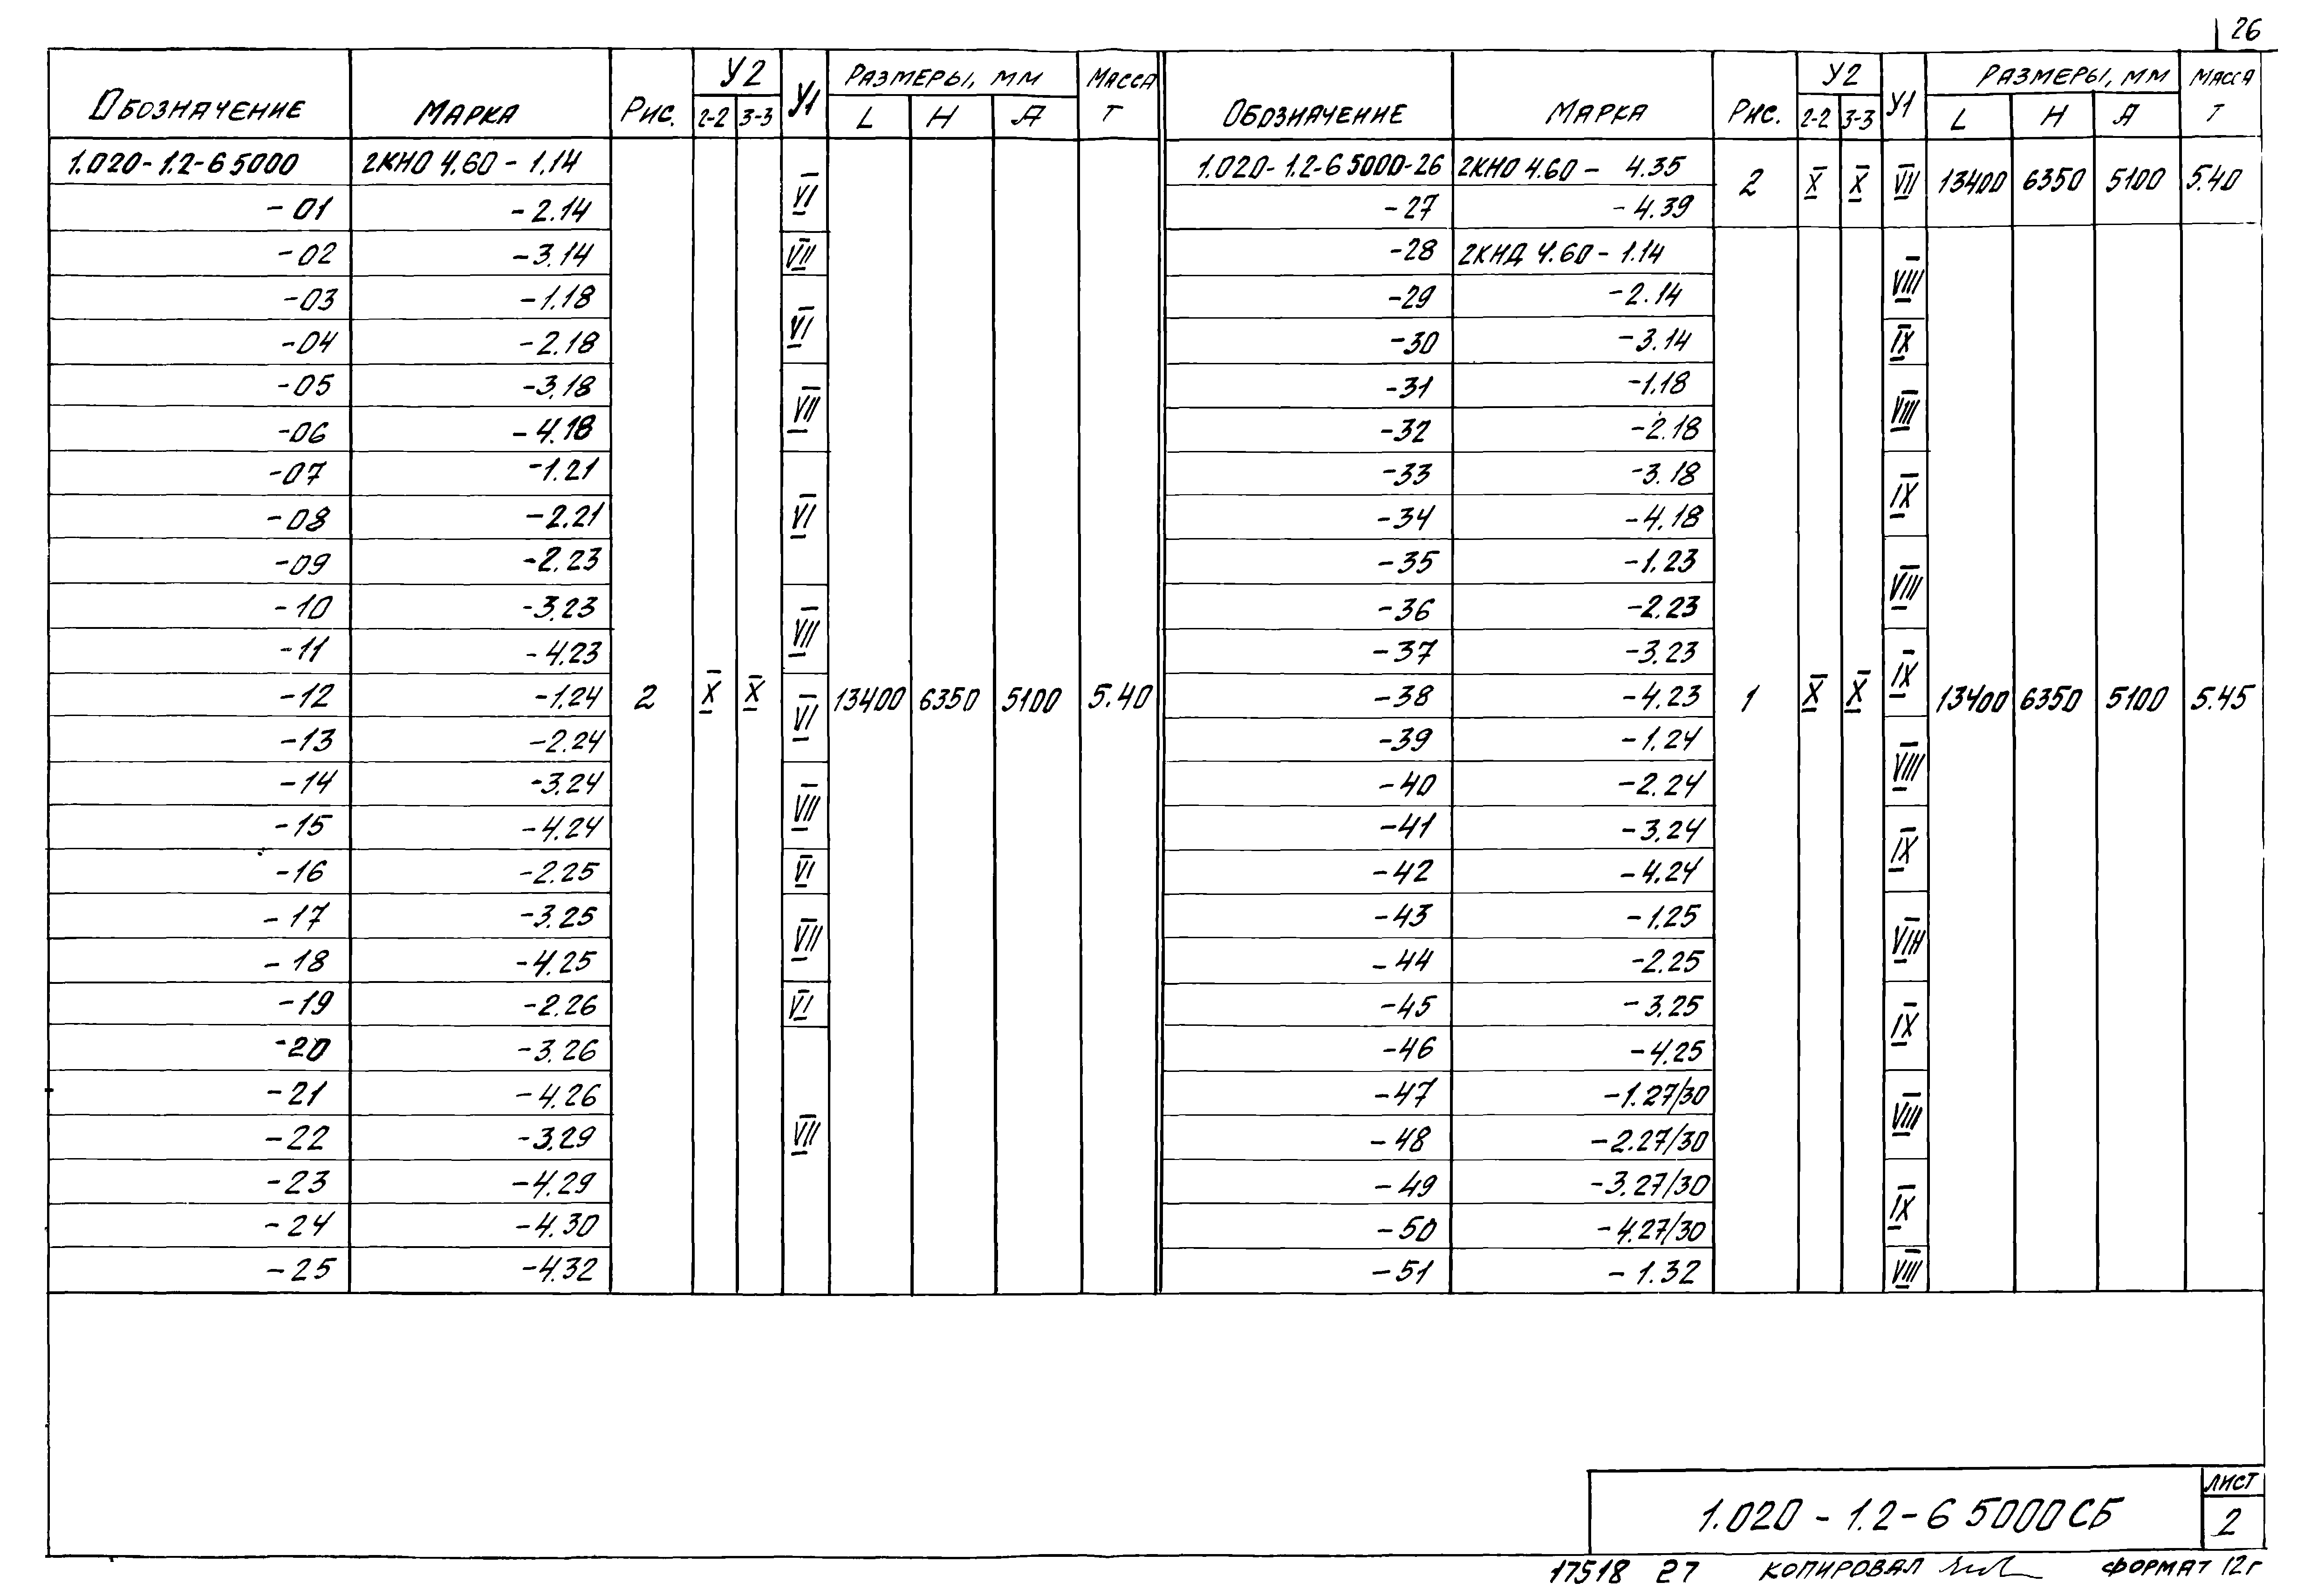 26
Обозначение Марка Рис. У2 У1 Размеры, мм Масса Обозначение Марка Рис. У2 У1 Размеры, мм Масса
2-2 3-3 L H A т 2-2 3-3 L H A т
1.020-1.2-6 5000 2КНО 4.60-1.14 VI 1.020-1.2-6 5000-26 2КНО 4.60- 4.35 2 X X VII 13400 6350 5100 5.40
-01 -2.14 -27 -4.39
-02 -3.14 VII -28 2КНД 4.60-1.14 VIII
-03 -1.18 VI -29 -2.14
-04 -2.18 -30 -3.14 IX
-05 -3.18 VII -31 -1.18 VIII
-06 -4.18 -32 -2.18
-07 -1.21 -33 -3.18 IX
-08 -2.21 VI -34 -4.18
-09 -2.23 -35 -1.23 VIII
-10 -3.23 VII -36 -2.23
-11 -4.23 -37 -3.23 IX
-12 -1.24 2 X X VI 13400 6350 5100 5.40 -38 -4.23 1 X X 13400 6350 5100 5.45
-13 -2.24 -39 -1.24 VIII
-14 -3.24 VII -40 -2.24
-15 -4.24 -41 -3.24 IX
-16 -2.25 VI -42 -4.24
-17 -3.25 VII -43 -1.25 VIII
-18 -4.25 -44 -2.25
-19 -2.26 VI -45 -3.25 IX
-20 -3.26 -46 -4.25
-21 -4.26 -47 -1.27/30 VIII
-22 -3.29 VII -48 -2.27/30
-23 -4.29 -49 -3.27/30 IX
-24 -4.30 -50 -4.27/30
-25 -4.32 -51 -1.32 VIII
1.020-1.2-6 5000СБ
Лист
2
17518 27 Копировал Формат 12г